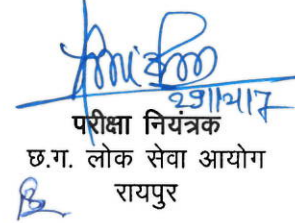 29/12/17
परीक्षा नियंत्रक
छ.ग. लोक सेवा आयोग
रायपुर